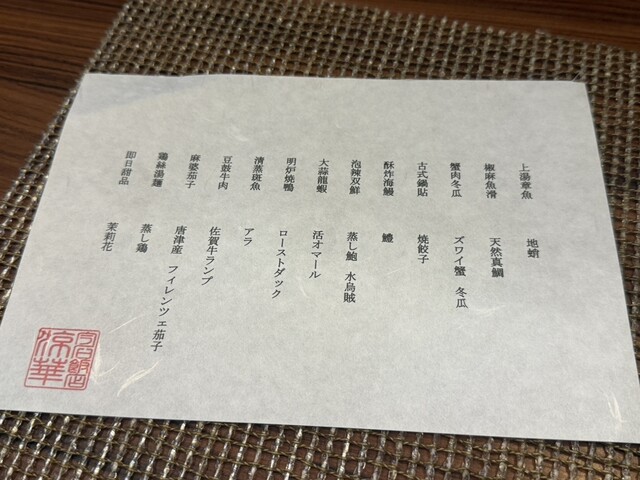 上湯章魚 地蛸
椒麻魚滑 天然真鯛
蟹肉冬瓜 ズワイ蟹 冬瓜
古式鍋貼 焼餃子
酥炸海鰻 鱧
泡辣双鮮 蒸し鮑 水烏賊
大蒜龍蝦 活オマール
明炉焼鴨 ローストダック
清蒸斑魚 アラ
豆鼓牛肉 佐賀牛ランプ
麻婆茄子 唐津産 フィレンツェ茄子
鶏絲湯麺 蒸し鶏
即日甜品 茉莉花